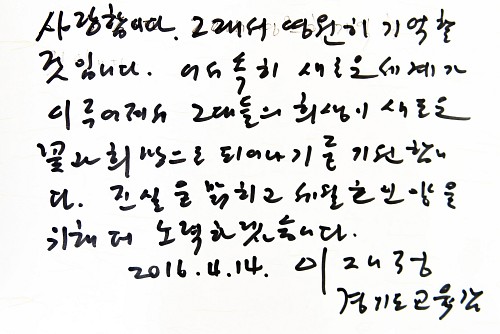 사랑합니다. 그대서 영원히 기억할
것입니다. 어서 속히 새로운 세계가
이루어져서 그대들의 희생이 새로운
꽃과 희망으로 되어나기를 기원합니
다. 진실을 밝히고 세월호 인양을
위해 더 노력하겠습니다.
2016.4.14. 이재정
경기도교육감